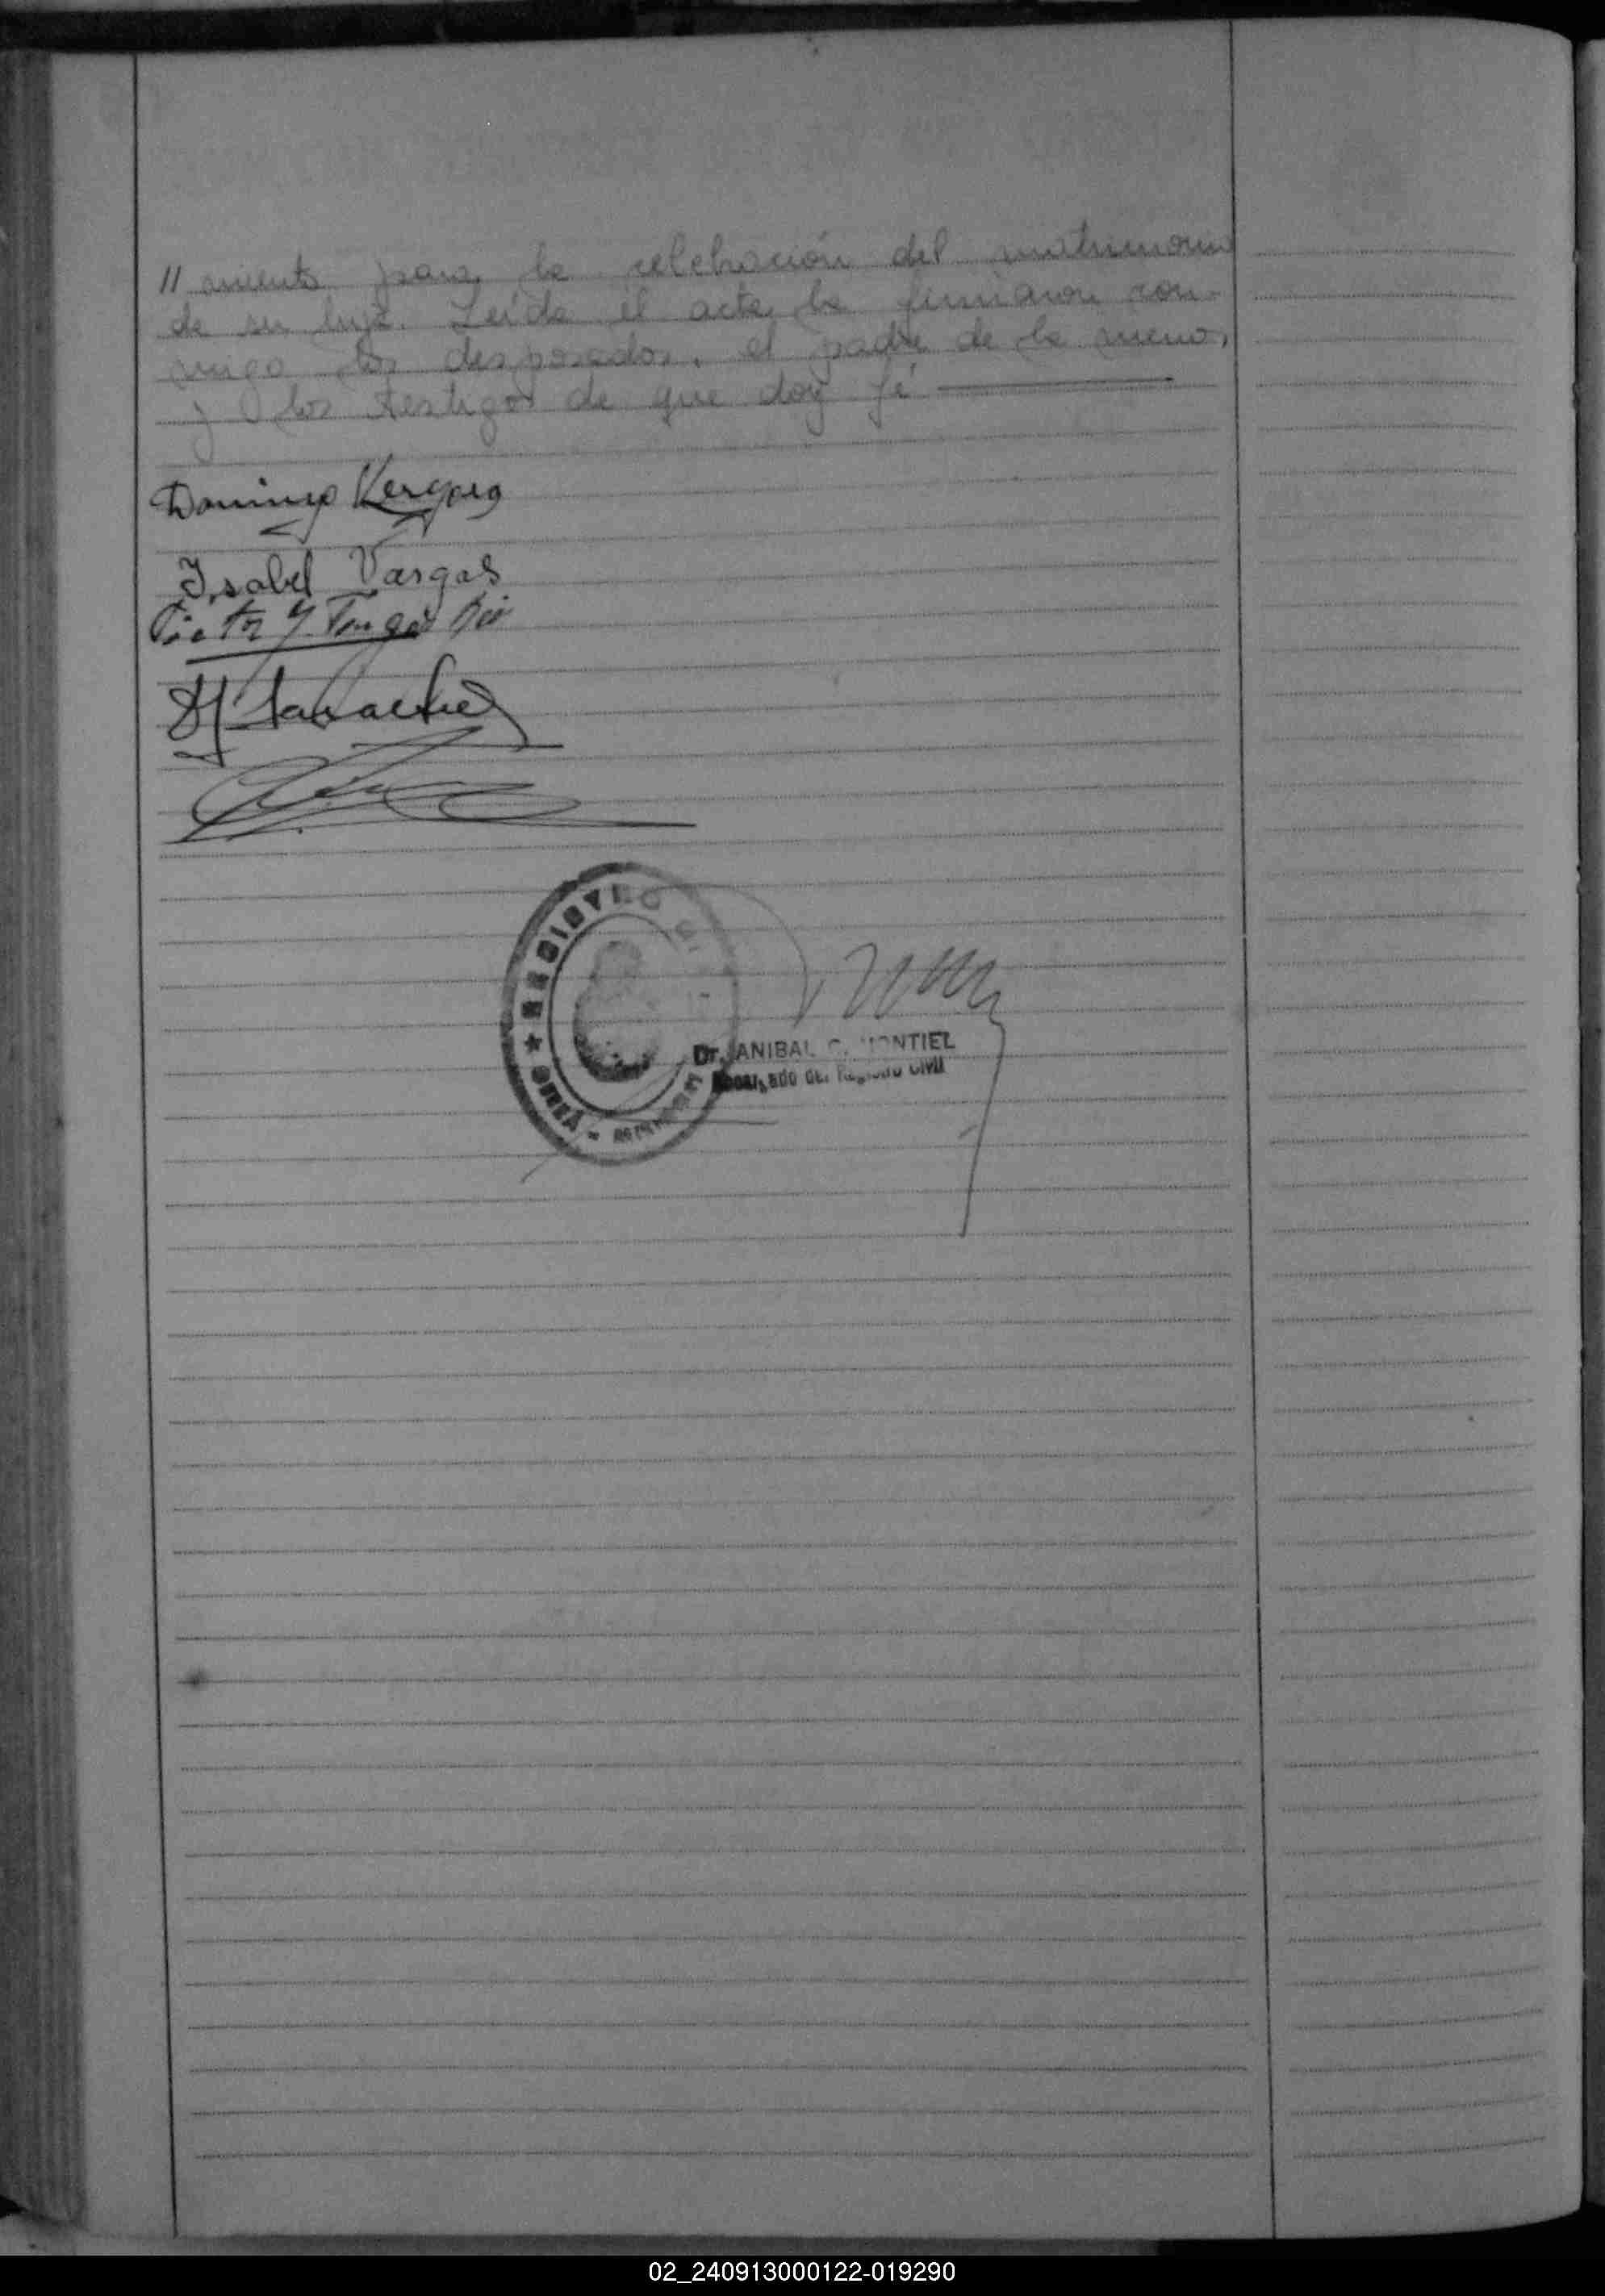 // amiento para la celebración del matrimonio
de su hija. Leída el acta, la firmaron con-
migo los desposados, el padre de la menor,
y los testigos de que doy fé
Domingo Vergara
Isabel Vargas
REGISTRO CI
Dr. ANIBAL C. MONTIEL
Encargado del Registro Civil
02_240913000122-019290